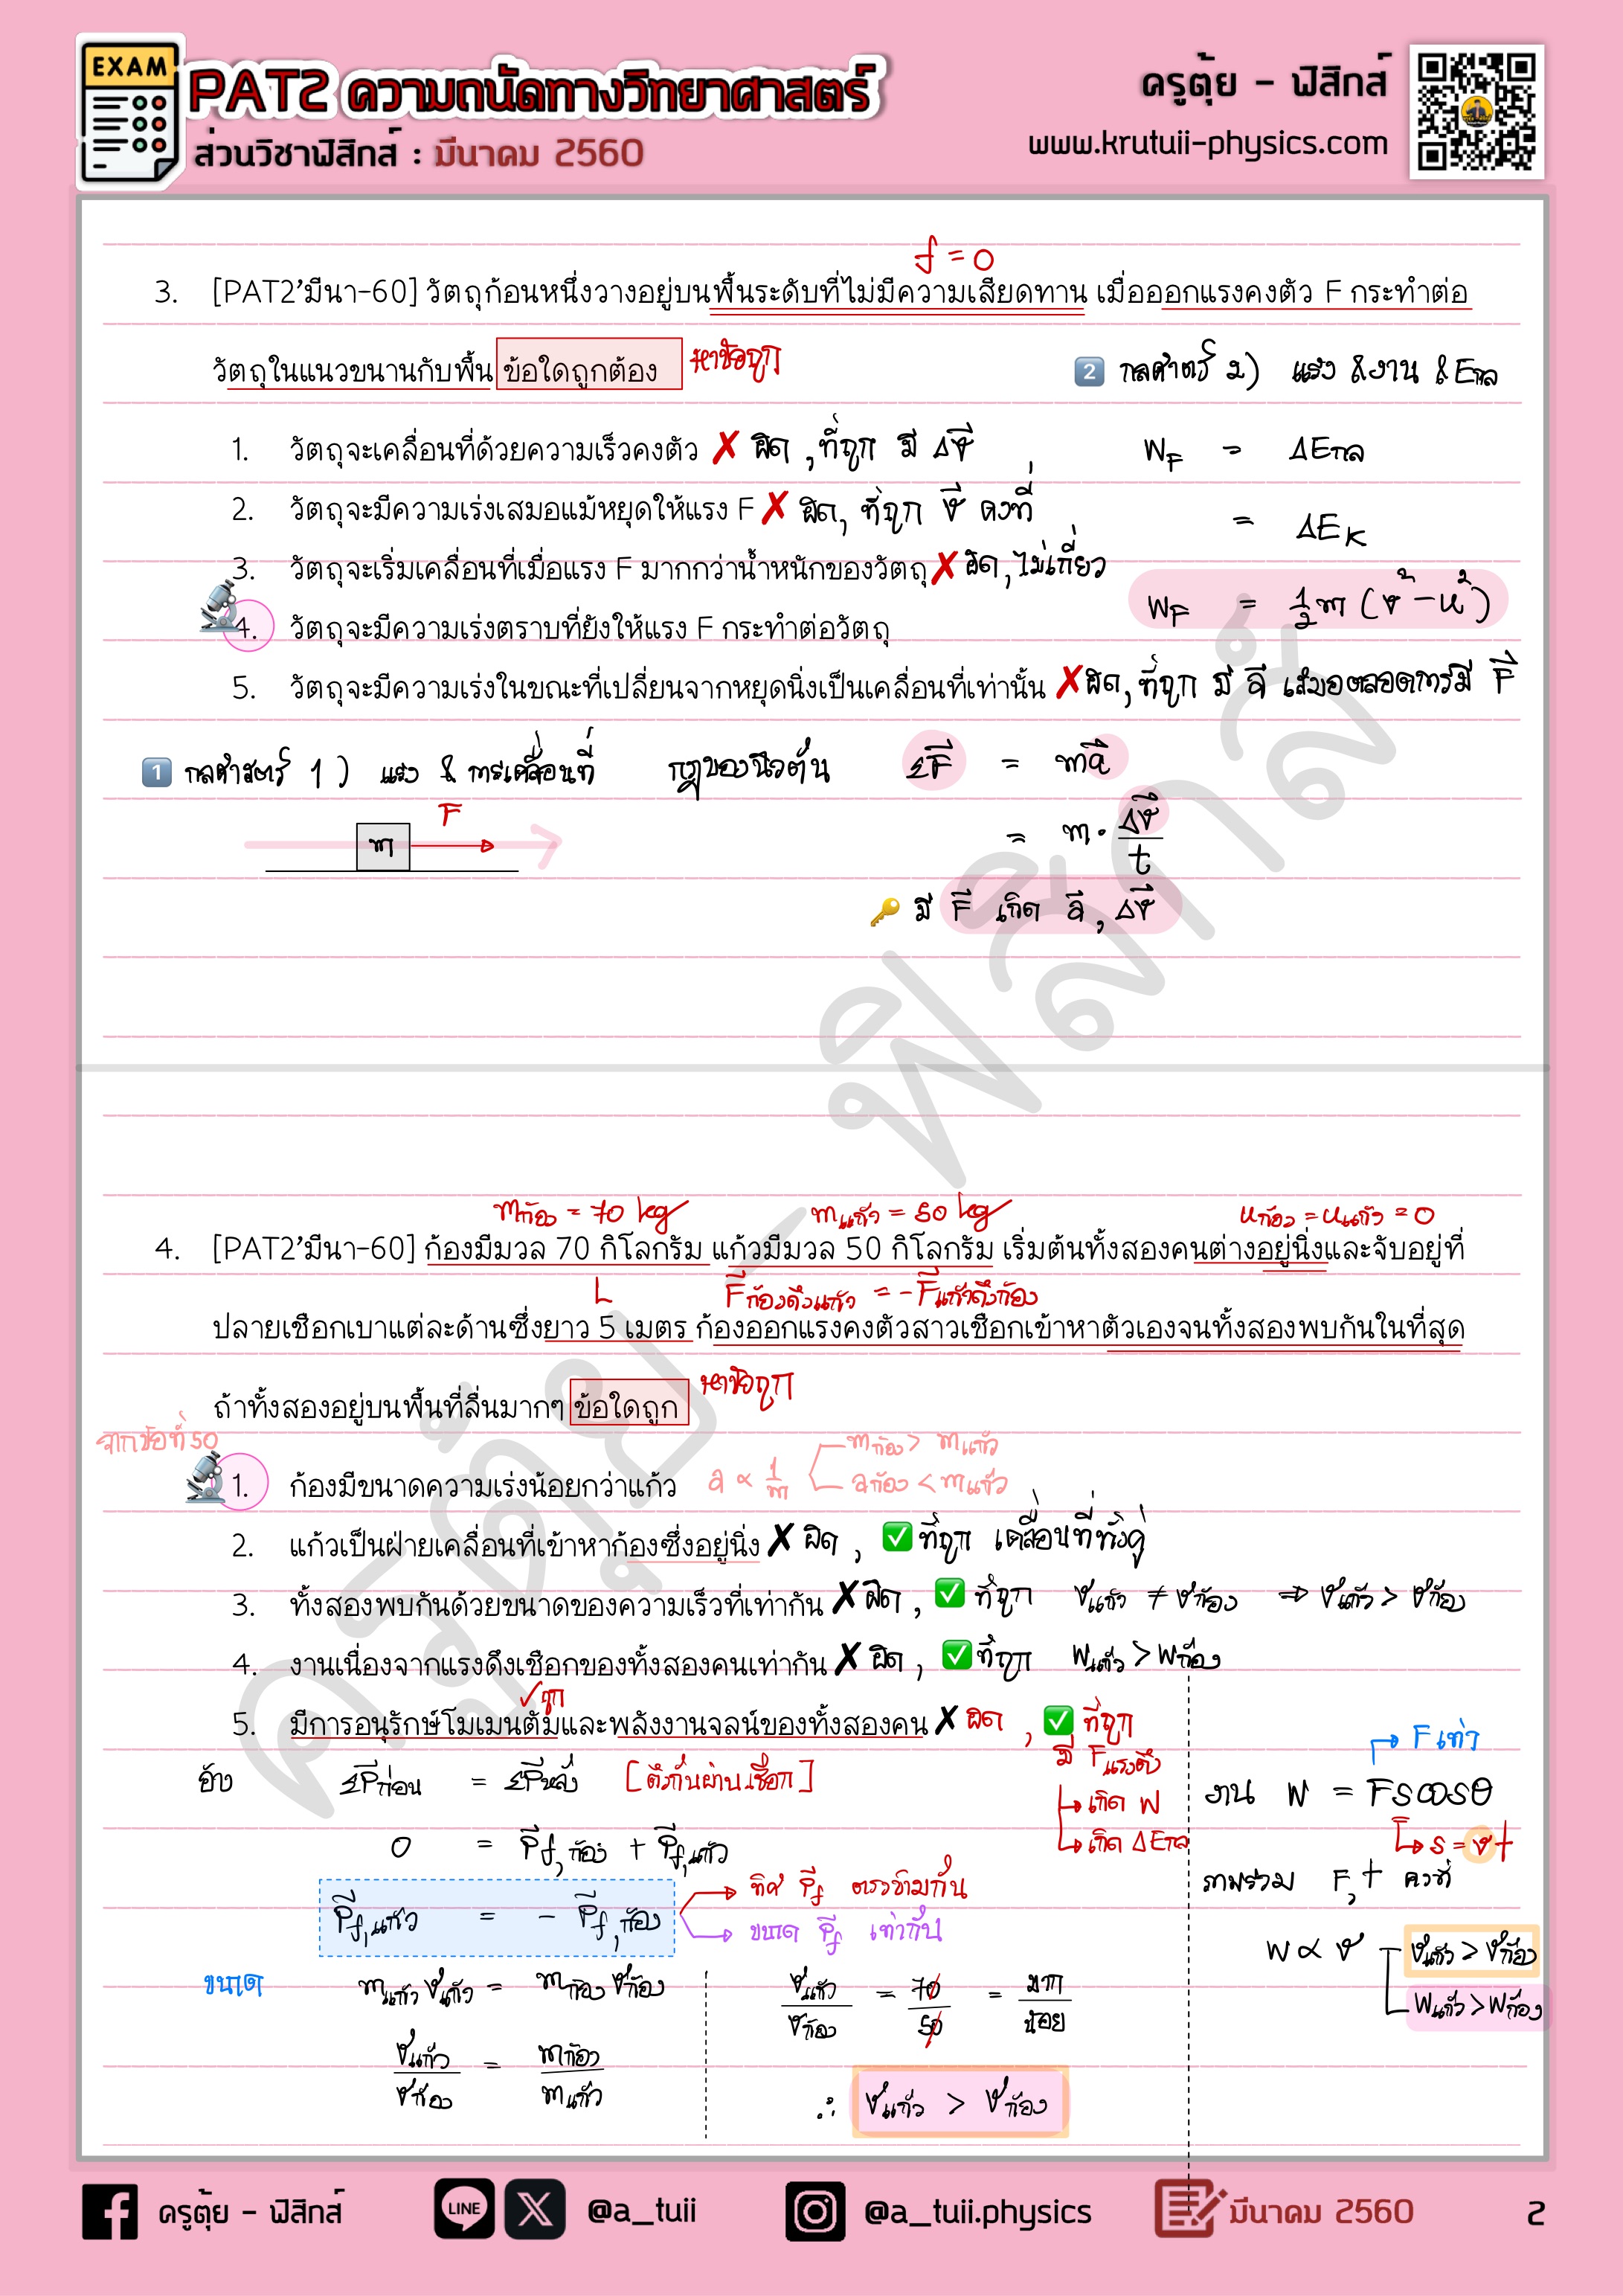 EXAM
PAT2 ความถนัดทางวิทยาศาสตร์
ส่วนวิชาฟิสิกส์ : มีนาคม 2560
ครูตุ้ย - ฟิสิกส์
www.krutuii-physics.com
f = 0
3. [PAT2'มีนา-60] วัตถุก้อนหนึ่งวางอยู่บนพื้นระดับที่ไม่มีความเสียดทาน เมื่อออกแรงคงตัว F กระทำต่อ
วัตถุในแนวขนานกับพื้น ข้อใดถูกต้อง หาข้อถูก
2 กลศาสตร์ 2) แรง & งาน & Eกล
1. วัตถุจะเคลื่อนที่ด้วยความเร็วคงตัว ✗ ผิด, ที่ถูก มี Δv⃗
W_F = ΔEกล
2. วัตถุจะมีความเร่งเสมอแม้หยุดให้แรง F ✗ ผิด, ที่ถูก v⃗ คงที่
= ΔE_K
3. วัตถุจะเริ่มเคลื่อนที่เมื่อแรง F มากกว่าน้ำหนักของวัตถุ ✗ ผิด, ไม่เกี่ยว
W_F = ½ m (v² - u²)
4. วัตถุจะมีความเร่งตราบที่ยังให้แรง F กระทำต่อวัตถุ
5. วัตถุจะมีความเร่งในขณะที่เปลี่ยนจากหยุดนิ่งเป็นเคลื่อนที่เท่านั้น ✗ ผิด, ที่ถูก มี a⃗ เสมอตลอดการมี F⃗
1 กลศาสตร์ 1) แรง & การเคลื่อนที่ กฎของนิวตัน ΣF⃗ = ma⃗
F
m
= m · Δv⃗/t
🔑 มี F⃗ เกิด a⃗, Δv⃗
mก้อง = 70 kg mแก้ว = 50 kg uก้อง = uแก้ว = 0
4. [PAT2'มีนา-60] ก้องมีมวล 70 กิโลกรัม แก้วมีมวล 50 กิโลกรัม เริ่มต้นทั้งสองคนต่างอยู่นิ่งและจับอยู่ที่
L F⃗ก้องดึงแก้ว = -F⃗แก้วดึงก้อง
ปลายเชือกเบาแต่ละด้านซึ่งยาว 5 เมตร ก้องออกแรงคงตัวสาวเชือกเข้าหาตัวเองจนทั้งสองพบกันในที่สุด
ถ้าทั้งสองอยู่บนพื้นที่ลื่นมากๆ ข้อใดถูก หาข้อถูก
จากข้อที่ 50
mก้อง > mแก้ว
1. ก้องมีขนาดความเร่งน้อยกว่าแก้ว a ∝ 1/m
aก้อง < mแก้ว
2. แก้วเป็นฝ่ายเคลื่อนที่เข้าหาก้องซึ่งอยู่นิ่ง ✗ ผิด, ✅ ที่ถูก เคลื่อนที่ทั้งคู่
3. ทั้งสองพบกันด้วยขนาดของความเร็วที่เท่ากัน ✗ ผิด, ✅ ที่ถูก vแก้ว ≠ vก้อง ⇒ vแก้ว > vก้อง
4. งานเนื่องจากแรงดึงเชือกของทั้งสองคนเท่ากัน ✗ ผิด, ✅ ที่ถูก Wแก้ว > Wก้อง
✓ถูก
5. มีการอนุรักษ์โมเมนตัมและพลังงานจลน์ของทั้งสองคน ✗ ผิด, ✅ ที่ถูก
มี Fแรงดึง
เกิด W
เกิด ΔEกล
อ้าง ΣP⃗ก่อน = ΣP⃗หลัง [ดึงกันผ่านเชือก]
0 = P⃗f,ก้อง + P⃗f,แก้ว
P⃗f,แก้ว = - P⃗f,ก้อง
ทิศ P⃗f ตรงข้ามกัน
ขนาด P⃗f เท่ากัน
ขนาด mแก้ว vแก้ว = mก้อง vก้อง
vแก้ว/vก้อง = mก้อง/mแก้ว
vแก้ว/vก้อง = 70/50 = มาก/น้อย
∴ vแก้ว > vก้อง
F เท่า
งาน W = FScosθ
s = vt
ภาพรวม F, t คงที่
W ∝ v
vแก้ว > vก้อง
Wแก้ว > Wก้อง
ครูตุ้ย - ฟิสิกส์
ครูตุ้ย - ฟิสิกส์
LINE
@a_tuii
@a_tuii.physics
มีนาคม 2560
2